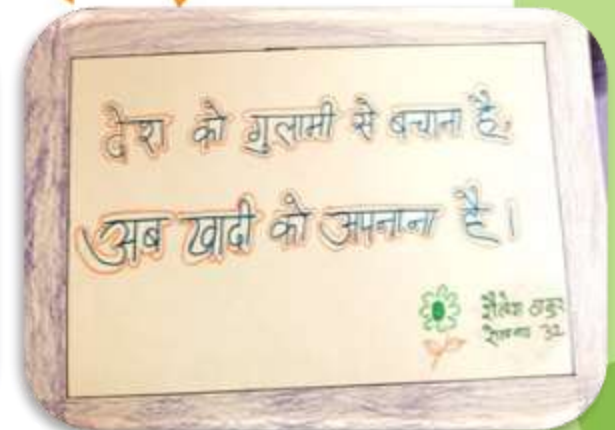 देश को गुलामी से बचाना है,
अब खादी को अपनाना है।
शैलेश ठाकुर
32